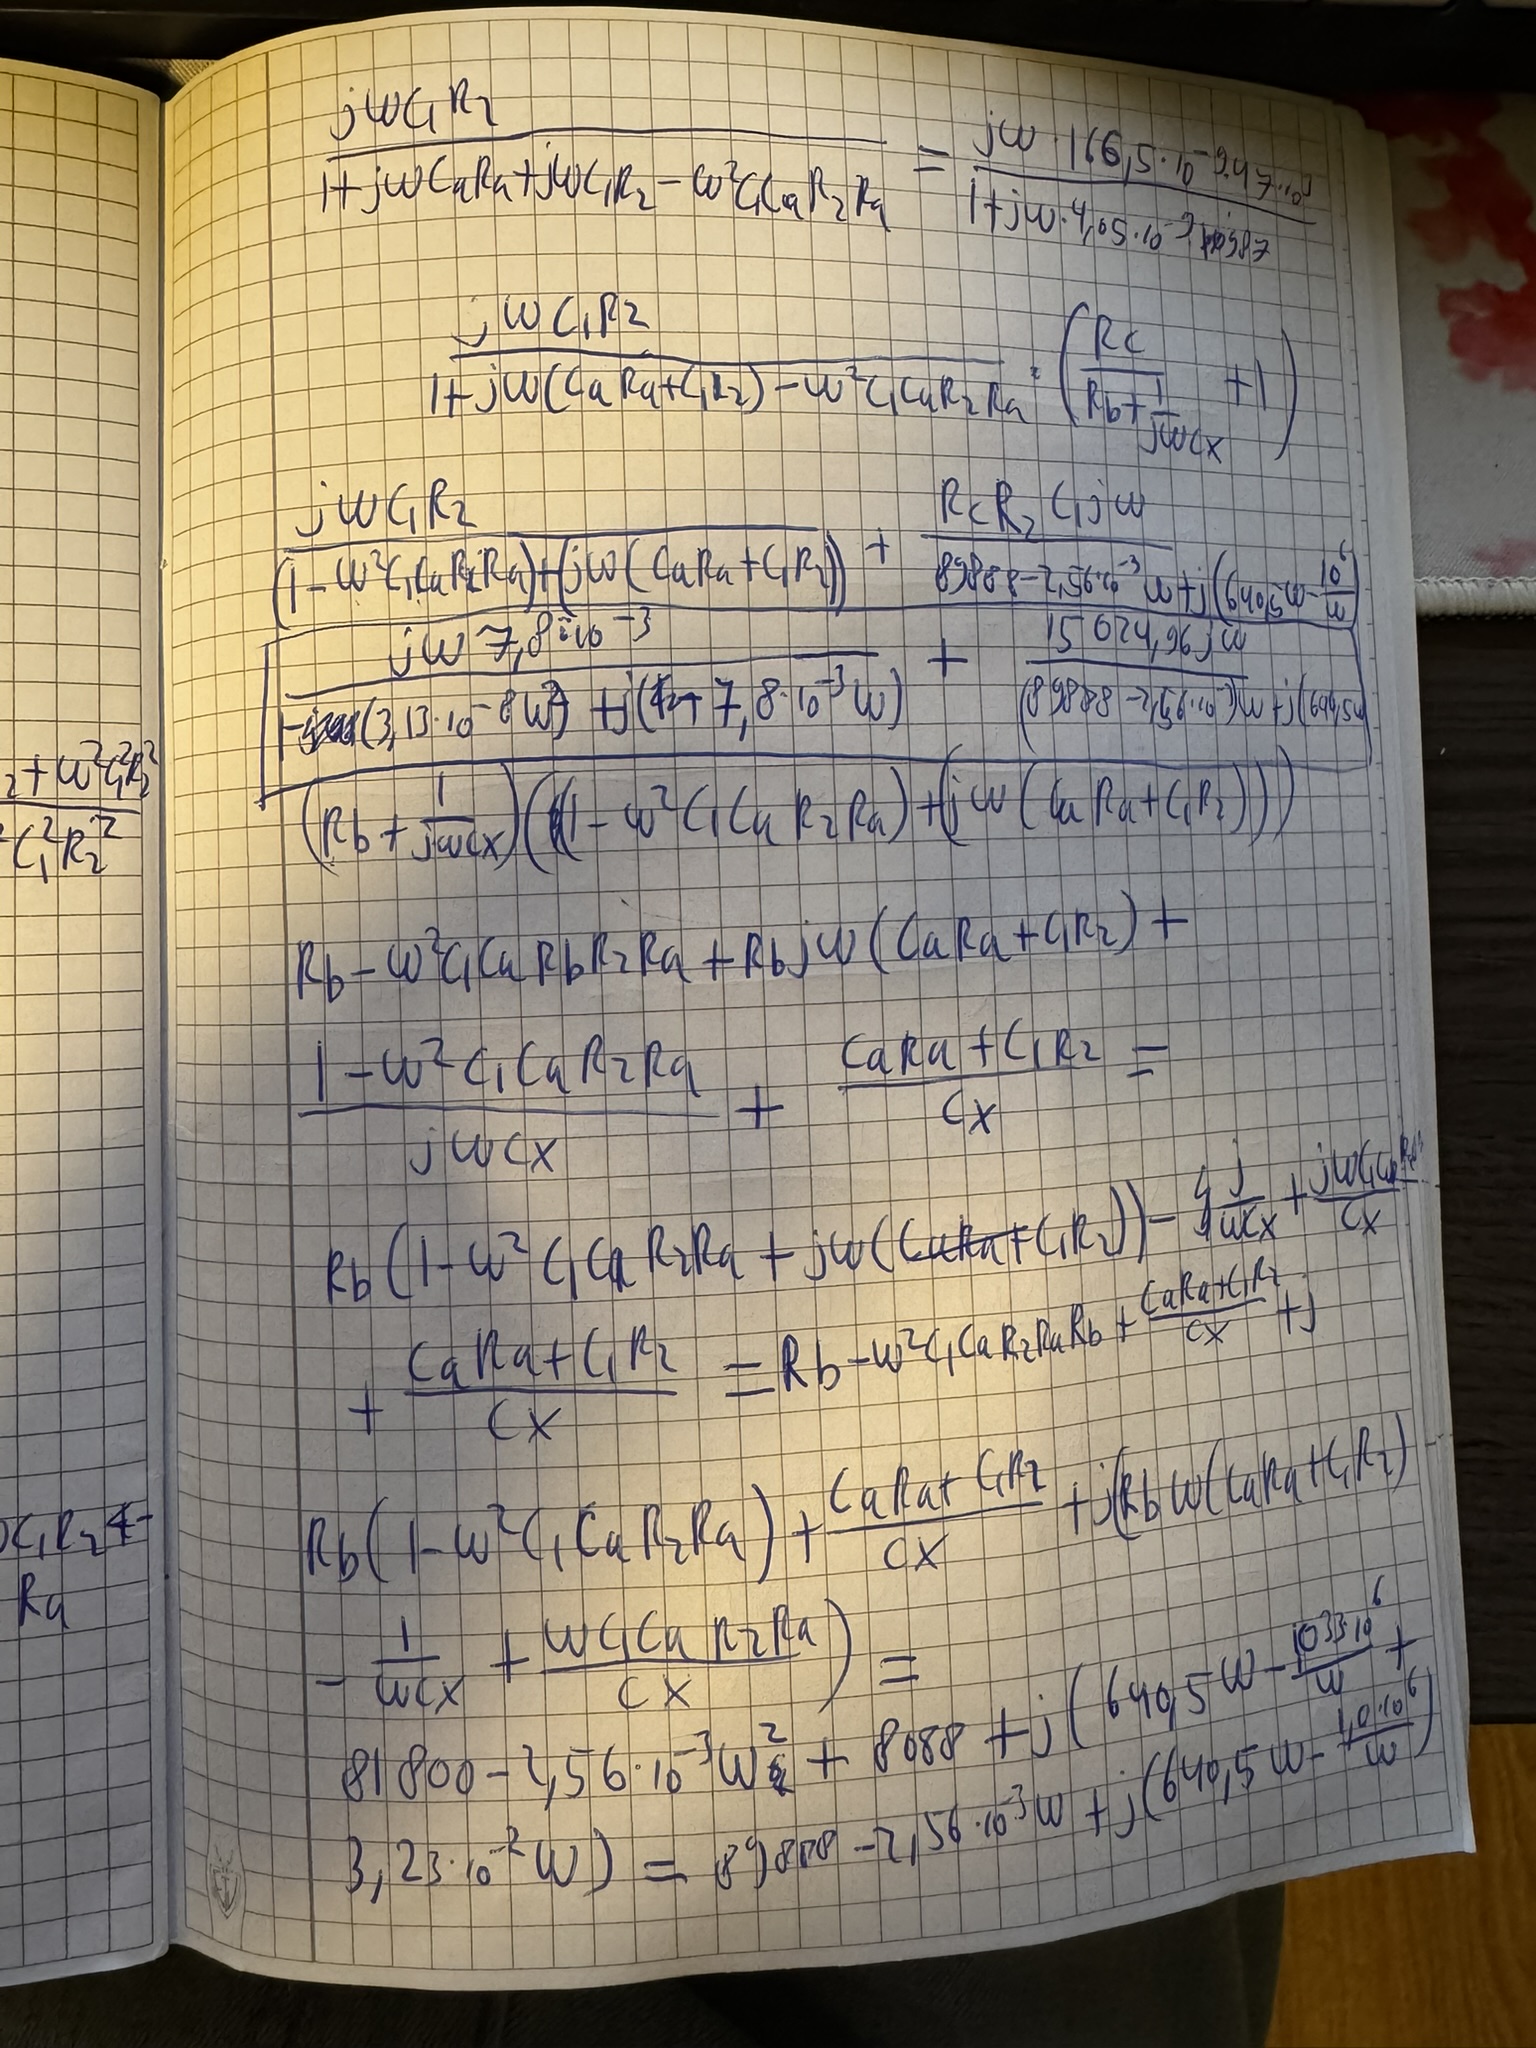 jωC₁R₂ / (1+jωCaRa+jωC₁R₂-ω²C₁CaR₂Ra) = jω·166,5·10⁻⁹·47 / (1+jω·4,05·10⁻⁶
jωC₁R₂ / (1+jω(CaRa+C₁R₂)-ω²C₁CaR₂Ra) · (Rc / (Rb+1/jωCx) +1)
jωC₁R₂ / ((1-ω²C₁CaR₂Ra)+(jω(CaRa+C₁R₂)) + RcR₂C₁jω / (89888-2,56·10⁻³ω+j(640,5ω-10⁶/ω)
jω7,8·10⁻³ / (1-(3,13·10⁻⁸ω²) +j(+7,8·10⁻³ω) + 15024,96jω / (89888-2,56·10⁻³)ω+j)
(Rb+1/jωCx)((1-ω²C₁CaR₂Ra)+(jω(CaRa+C₁R₂)))
Rb-ω²C₁CaRbR₂Ra+Rbjω(CaRa+C₁R₂)+
(1-ω²C₁CaR₂Ra) / jωCx + (CaRa+C₁R₂) / Cx =
Rb(1-ω²C₁CaR₂Ra+jω(CaRa+C₁R₂))- j/ωCx + jωC₁Ca / Cx
+ (CaRa+C₁R₂) / Cx =Rb-ω²C₁CaR₂RaRb+ (CaRa+C₁R₂) / Cx +j
Rb(1-ω²C₁CaR₂Ra)+ (CaRa+C₁R₂) / Cx +j(Rbω(CaRa+C₁R₂)
- 1/ωCx + ωC₁CaR₂Ra / Cx )=
81800-2,56·10⁻³ω²+8088+j(640,5ω- 1033·10⁶/ω +
3,23·10⁻²ω)=89888-2,56·10⁻³ω+j(640,5ω- 1,0·10⁶/ω)
₂+ω²C₁²R₂²
²C₁²R₂²
C₁R₂+
Ra